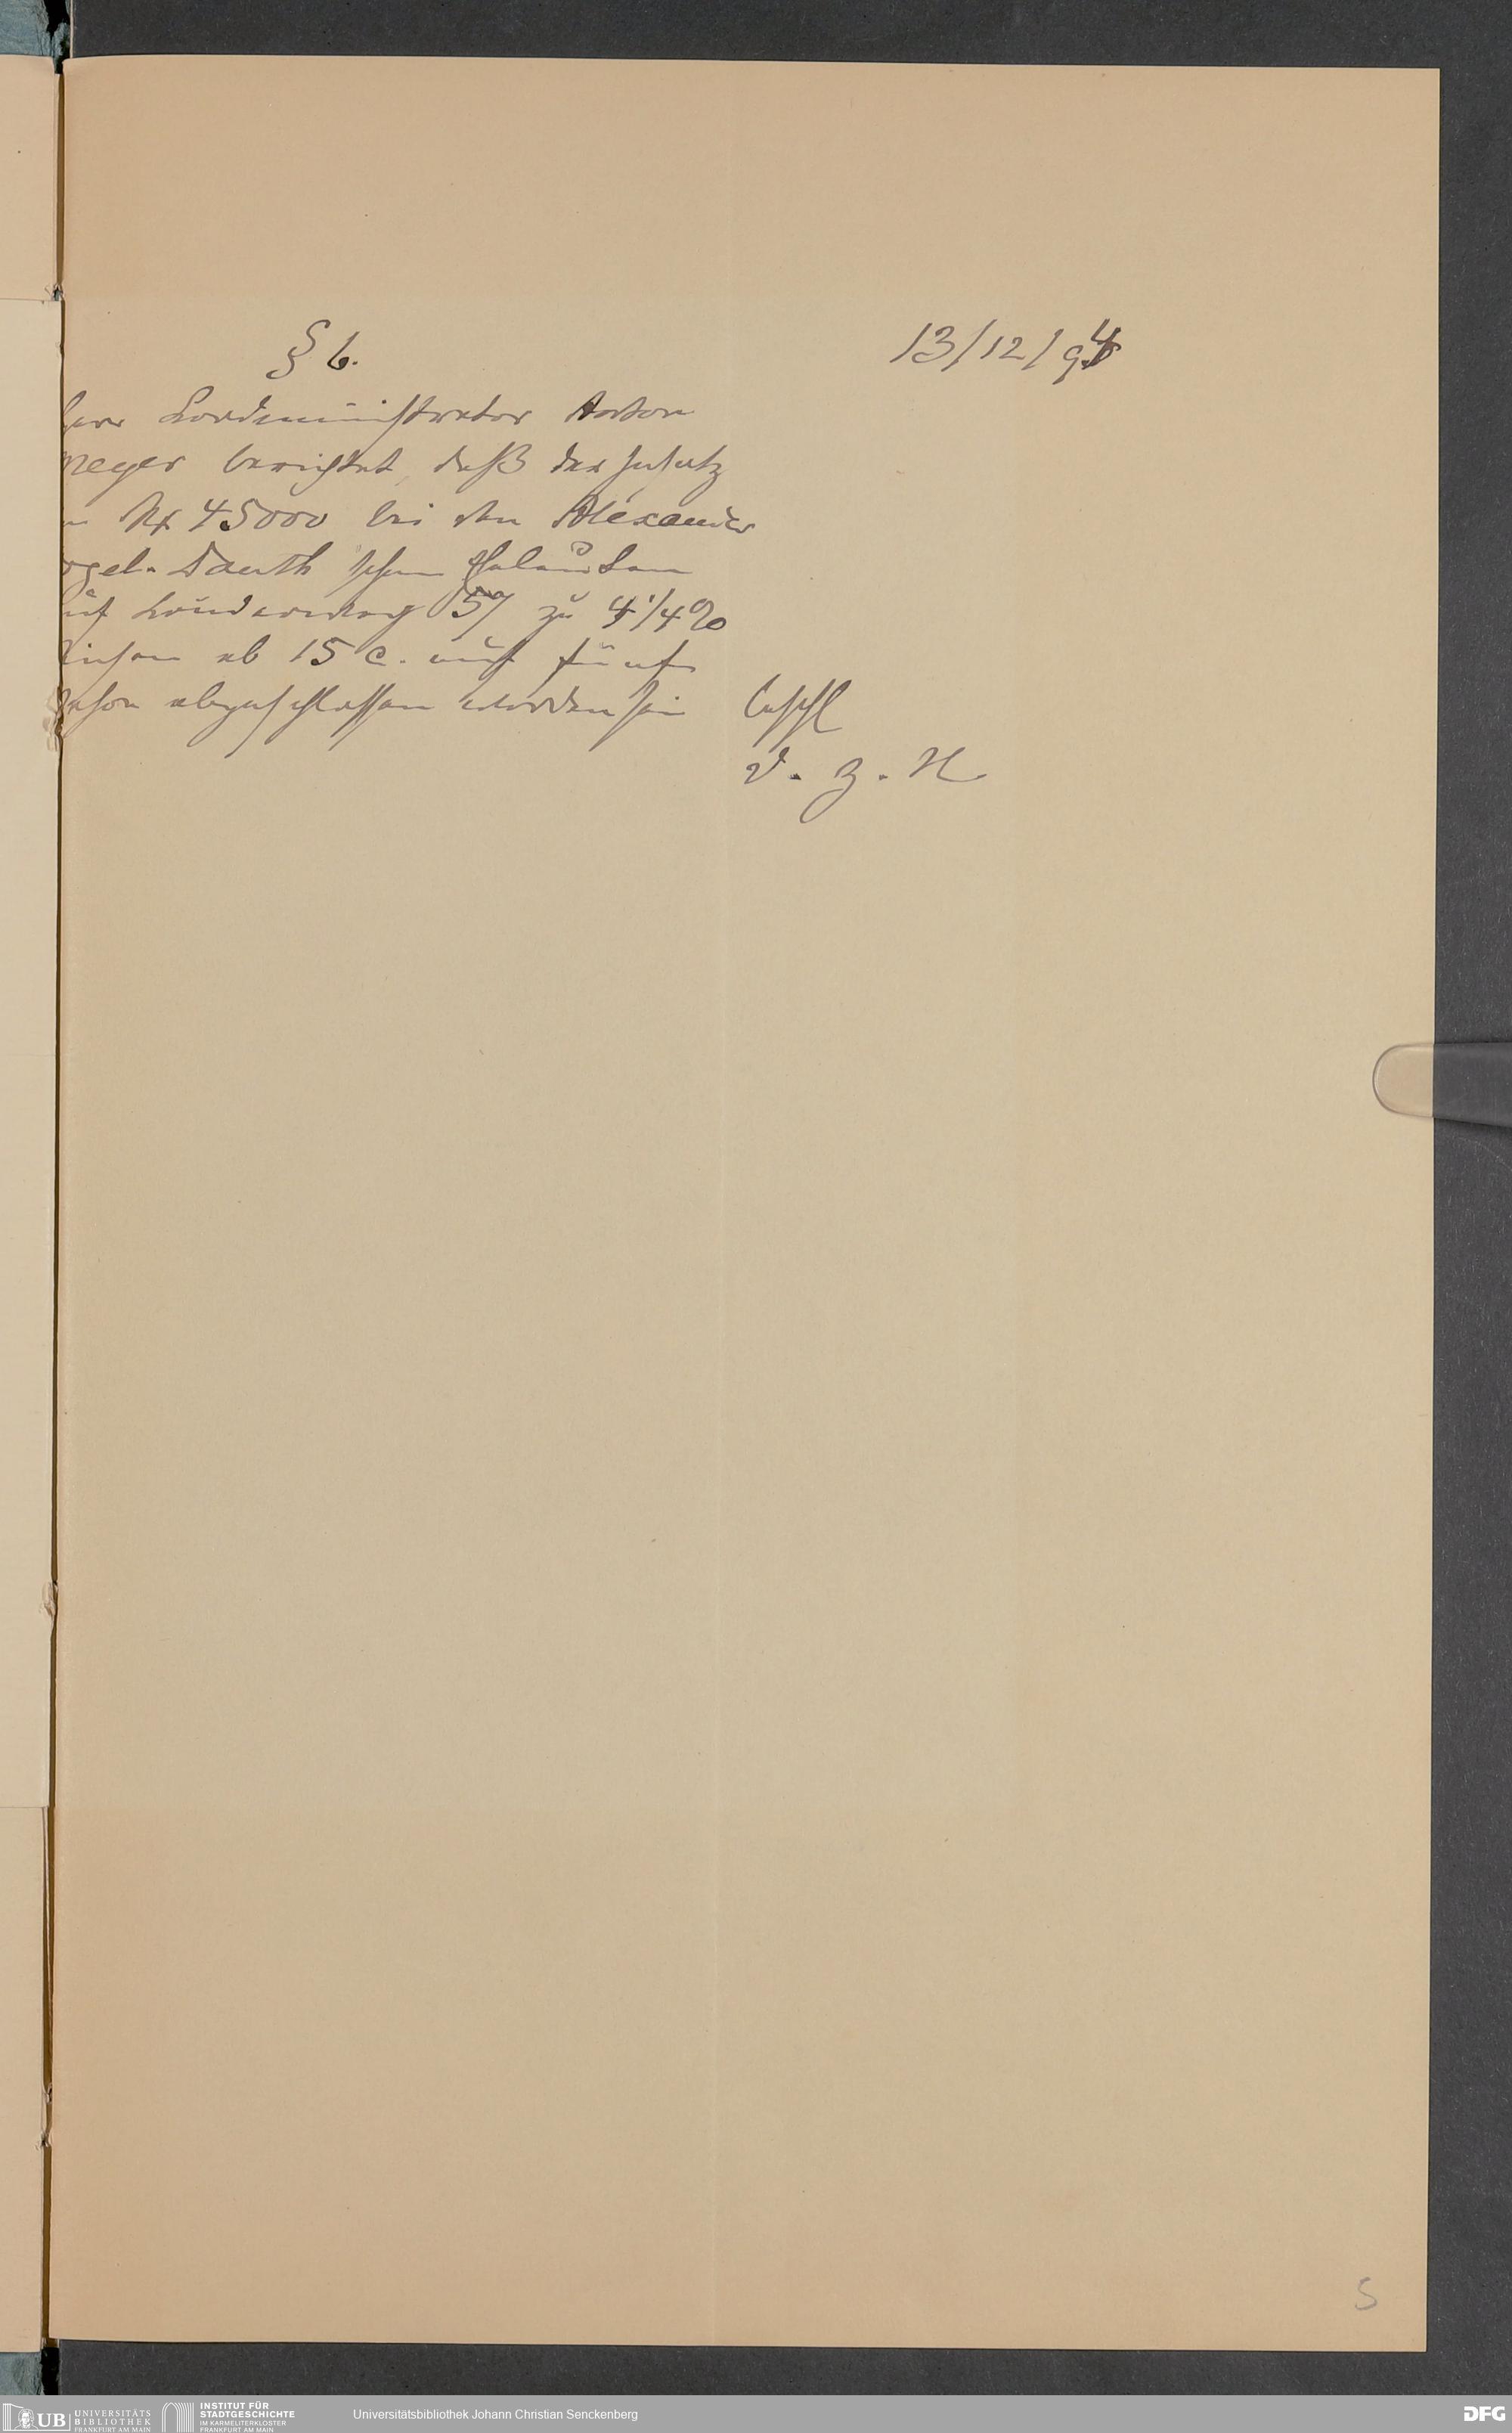 § 6.
13/12/94
Herr Coadministrator Anton
meyer berichtet, daß der Insatz
M 45000 bei den Alexander
ogel. Dauth'schen Eheleuten
auf 57 zu 4 1/4 %
Zinsen ab 15 c. auf fünf
Jahre abgeschlossen worden sei
beschl
V. z. N
5
UB UNIVERSITÄTS BIBLIOTHEK FRANKFURT AM MAIN
INSTITUT FÜR STADTGESCHICHTE IM KARMELITERKLOSTER FRANKFURT AM MAIN
Universitätsbibliothek Johann Christian Senckenberg
DFG